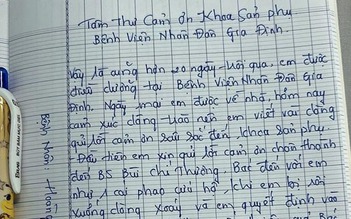 Tâm Thư Cảm ơn Khoa Sản phụ
Bệnh Viện Nhân Dân Gia Định.
Vậy là cũng hơn 20 ngày trôi qua, em được
điều dưỡng tại Bệnh Viện Nhân Dân Gia
Định. Ngày mai em được về nhà, hôm nay
cảm xúc dâng trào nên em viết vài dòng
gửi lời cảm ơn sâu sắc đến khoa Sản phụ.
- Đầu tiên em xin gửi lời cảm ơn chân thành
đến BS Bùi Chí Thương. Bác đến với em
như 1 cái phao cứu hộ khi em bị rơi
xuống dòng xoáy và em quyết định vào
Bệnh Nhân: Hoàng